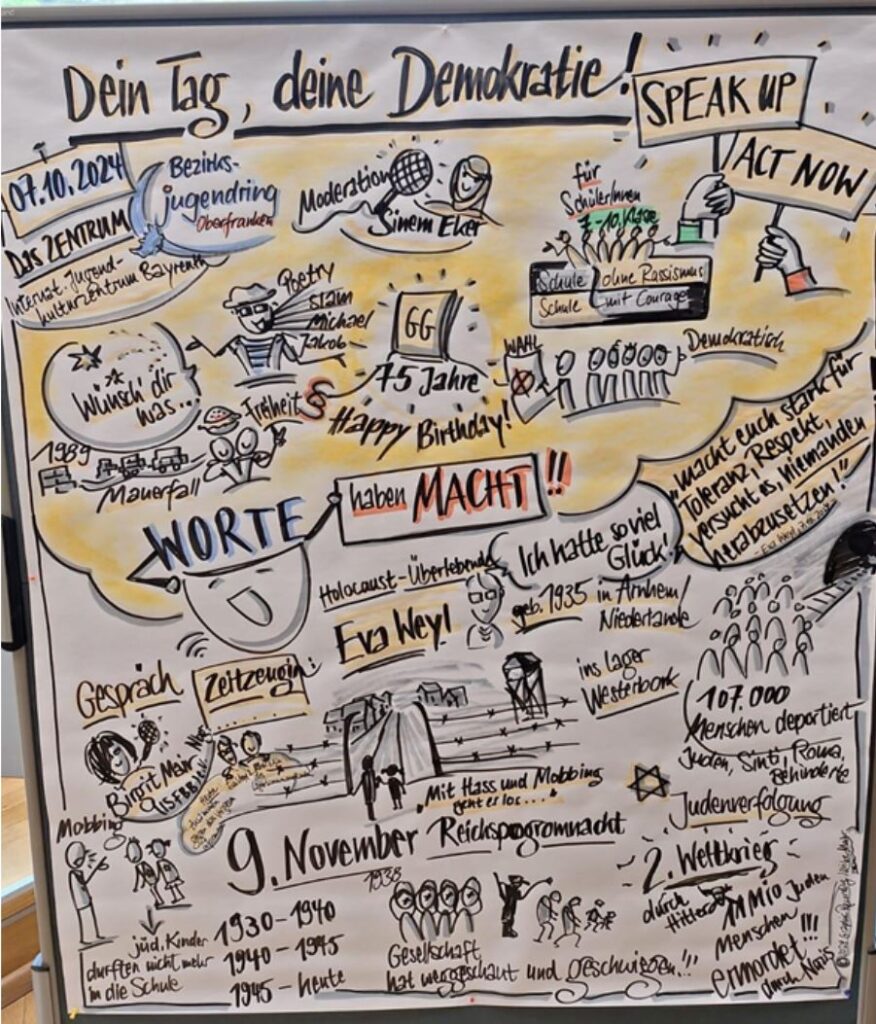 Dein Tag, deine Demokratie!
SPEAK UP
ACT NOW
07.10.2024
Das ZENTRUM
Internat. Jugend-
kulturzentrum Bayreuth
Bezirks-
jugendring
Oberfranken
Moderation
Sinem Eker
für
SchülerInnen
7.-10. Klasse
Schule ohne Rassismus
Schule mit Courage
Poetry
Slam
Michael
Jakob
GG
75 Jahre
Happy Birthday!
WAHL
Demokratisch
Wünsch dir
was...
Freiheit
§
1989
Mauerfall
WORTE
haben MACHT!!
"macht euch stark für
Toleranz, Respekt,
versucht es, niemanden
herabzusetzen!"
Holocaust-Überlebende
Eva Weyl
Ich hatte so viel
Glück!
geb. 1935 in Arnhem/
Niederlande
ins Lager
Westerbork
107.000
Menschen deportiert
Juden, Sinti, Roma,
Behinderte
Gespräch
Zeitzeugin:
Birgit Mair
"Mit Hass und Mobbing
geht es los..."
Judenverfolgung
Mobbing
9. November Reichsprogromnacht
1938
2. Weltkrieg
durch
Hitler
11 Mio Juden
Menschen
ermordet!!!
durch Nazis
jüd. Kinder
durften nicht mehr
in die Schule
1930-1940
1940-1945
1945-heute
Gesellschaft
hat weggeschaut und geschwiegen!!!